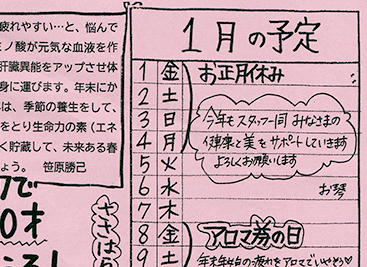 疲れやすい…と、悩んで
ミノ酸が元気な血液を作
肝臓異能をアップさせ体
身に運びます。年末にか
は、季節の養生をして、
をとり生命力の素（エネ
く貯蔵して、未来ある春
ょう。 笹原勝己
で
0才
ささはら
1月の予定
1 金 お正月休み
2 土
3 日
4 月
5 火
6 水
7 木
8 金 アロマ券の日
9 土 年末年始の疲れをアロマでいやそう♡
今年もスタッフ一同 みなさまの
健康と美をサポートしていきます
よろしくお願います
お琴